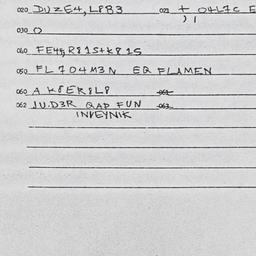 020 DUZE4, L8B3 021 + O4L7C E
030 O
040 FE45R81S+K81S
050 FL704M3N EQ FLAMEN
060 A K8ER8L8 061
062 1U.D3R QAP FUN 063
INVEYNIK